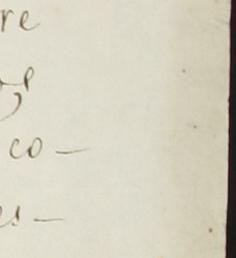 re
co-
es-